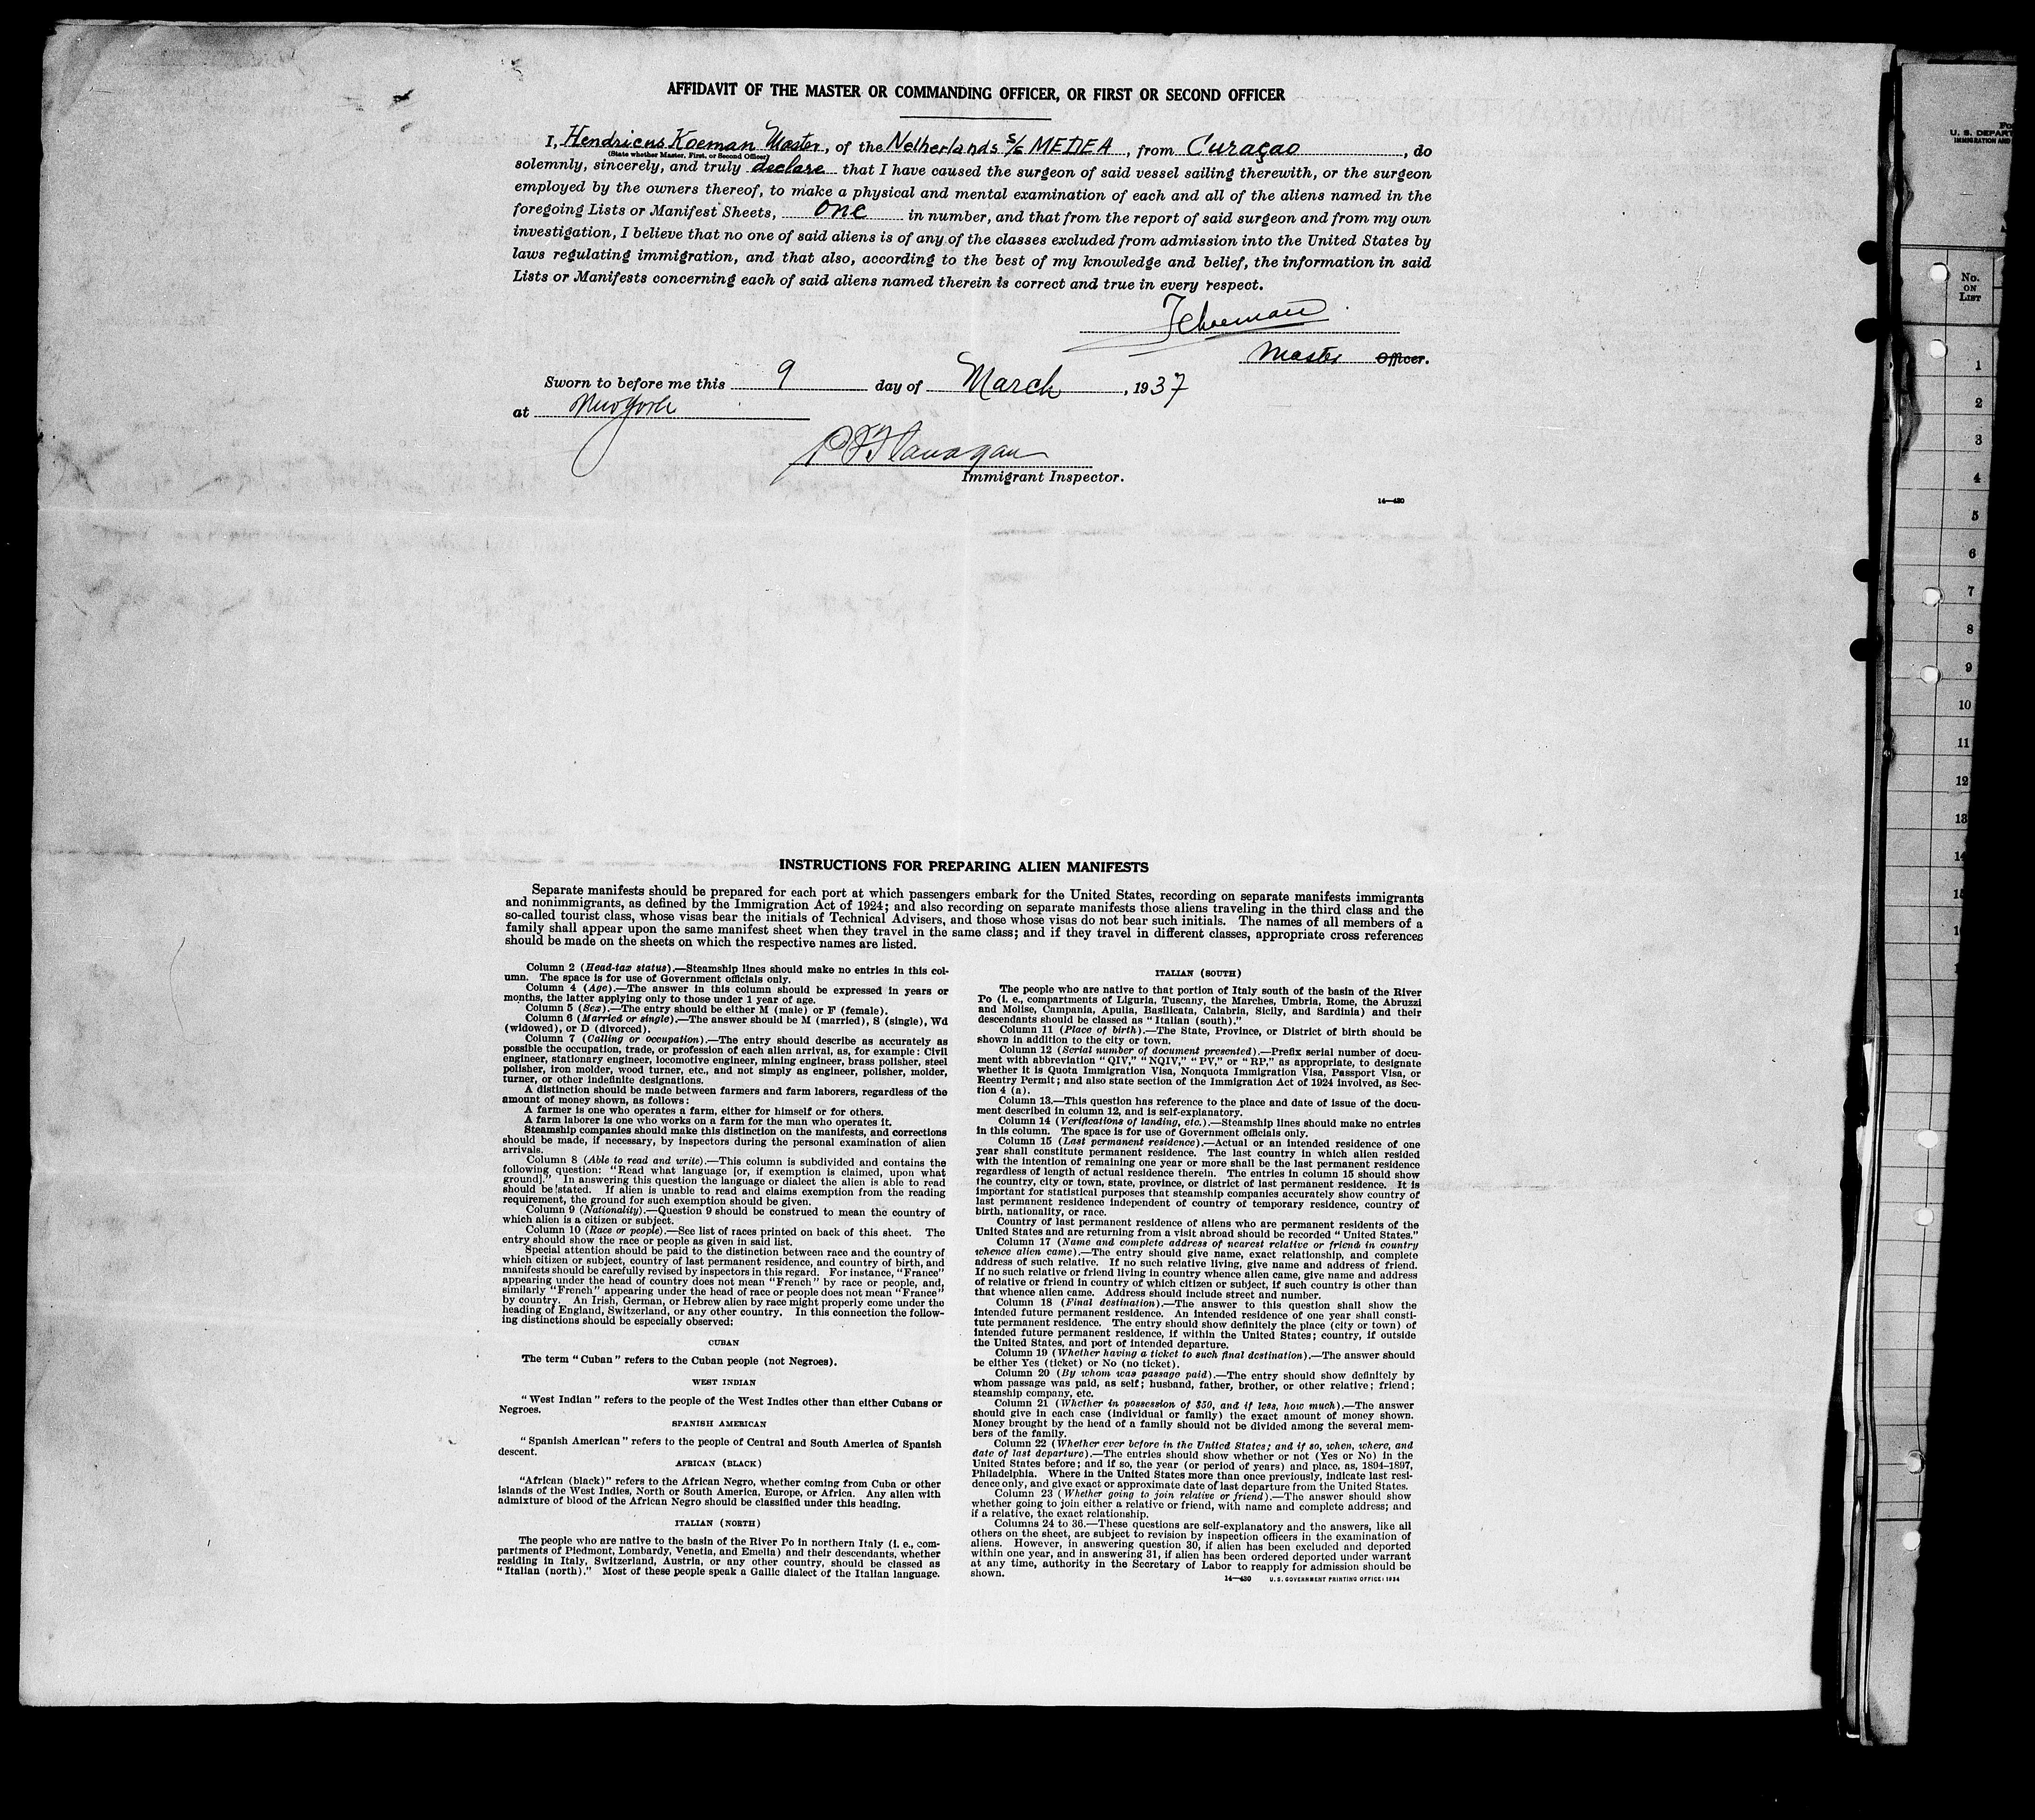 AFFIDAVIT OF THE MASTER OR COMMANDING OFFICER, OR FIRST OR SECOND OFFICER
I, Hendricus Koeman Master, of the Netherlands S/S MEDEA, from Curaçao, do
(State whether Master, First, or Second Officer)
solemnly, sincerely, and truly declare that I have caused the surgeon of said vessel sailing therewith, or the surgeon
employed by the owners thereof, to make a physical and mental examination of each and all of the aliens named in the
foregoing Lists or Manifest Sheets, one in number, and that from the report of said surgeon and from my own
investigation, I believe that no one of said aliens is of any of the classes excluded from admission into the United States by
laws regulating immigration, and that also, according to the best of my knowledge and belief, the information in said
Lists or Manifests concerning each of said aliens named therein is correct and true in every respect.
Master Officer.
Sworn to before me this 9 day of March, 1937
at New York
P F Flanagan
Immigrant Inspector.
14—430
INSTRUCTIONS FOR PREPARING ALIEN MANIFESTS
Separate manifests should be prepared for each port at which passengers embark for the United States, recording on separate manifests immigrants
and nonimmigrants, as defined by the Immigration Act of 1924; and also recording on separate manifests those aliens traveling in the third class and the
so-called tourist class, whose visas bear the initials of Technical Advisers, and those whose visas do not bear such initials. The names of all members of a
family shall appear upon the same manifest sheet when they travel in the same class; and if they travel in different classes, appropriate cross references
should be made on the sheets on which the respective names are listed.
Column 2 (Head-tax status).—Steamship lines should make no entries in this col-
umn. The space is for use of Government officials only.
Column 4 (Age).—The answer in this column should be expressed in years or
months, the latter applying only to those under 1 year of age.
Column 5 (Sex).—The entry should be either M (male) or F (female).
Column 6 (Married or single).—The answer should be M (married), S (single), Wd
(widowed), or D (divorced).
Column 7 (Calling or occupation).—The entry should describe as accurately as
possible the occupation, trade, or profession of each alien arrival, as, for example: Civil
engineer, stationary engineer, locomotive engineer, mining engineer, brass polisher, steel
polisher, iron molder, wood turner, etc., and not simply as engineer, polisher, molder,
turner, or other indefinite designations.
A distinction should be made between farmers and farm laborers, regardless of the
amount of money shown, as follows:
A farmer is one who operates a farm, either for himself or for others.
A farm laborer is one who works on a farm for the man who operates it.
Steamship companies should make this distinction on the manifests, and corrections
should be made, if necessary, by inspectors during the personal examination of alien
arrivals.
Column 8 (Able to read and write).—This column is subdivided and contains the
following question: "Read what language [or, if exemption is claimed, upon what
ground]." In answering this question the language or dialect the alien is able to read
should be stated. If alien is unable to read and claims exemption from the reading
requirement, the ground for such exemption should be given.
Column 9 (Nationality).—Question 9 should be construed to mean the country of
which alien is a citizen or subject.
Column 10 (Race or people).—See list of races printed on back of this sheet. The
entry should show the race or people as given in said list.
Special attention should be paid to the distinction between race and the country of
which citizen or subject, country of last permanent residence, and country of birth, and
manifests should be carefully revised by inspectors in this regard. For instance, "France"
appearing under the head of country does not mean "French" by race or people, and,
similarly "French" appearing under the head of race or people does not mean "France"
by country. An Irish, German, or Hebrew alien by race might properly come under the
heading of England, Switzerland, or any other country. In this connection the follow-
ing distinctions should be especially observed:
CUBAN
The term "Cuban" refers to the Cuban people (not Negroes).
WEST INDIAN
"West Indian" refers to the people of the West Indies other than either Cubans or
Negroes.
SPANISH AMERICAN
"Spanish American" refers to the people of Central and South America of Spanish
descent.
AFRICAN (BLACK)
"African (black)" refers to the African Negro, whether coming from Cuba or other
islands of the West Indies, North or South America, Europe, or Africa. Any alien with
admixture of blood of the African Negro should be classified under this heading.
ITALIAN (NORTH)
The people who are native to the basin of the River Po in northern Italy (i. e., com-
partments of Piedmont, Lombardy, Venetia, and Emelia) and their descendants, whether
residing in Italy, Switzerland, Austria, or any other country, should be classed as
"Italian (north)." Most of these people speak a Gallic dialect of the Italian language.
ITALIAN (SOUTH)
The people who are native to that portion of Italy south of the basin of the River
Po (i. e., compartments of Liguria, Tuscany, the Marches, Umbria, Rome, the Abruzzi
and Molise, Campania, Apulia, Basilicata, Calabria, Sicily, and Sardinia) and their
descendants should be classed as "Italian (south)."
Column 11 (Place of birth).—The State, Province, or District of birth should be
shown in addition to the city or town.
Column 12 (Serial number of document presented).—Prefix serial number of docu-
ment with abbreviation "QIV," "NQIV," "PV," or "RP," as appropriate, to designate
whether it is Quota Immigration Visa, Nonquota Immigration Visa, Passport Visa, or
Reentry Permit; and also state section of the Immigration Act of 1924 involved, as Sec-
tion 4 (a).
Column 13.—This question has reference to the place and date of issue of the docu-
ment described in column 12, and is self-explanatory.
Column 14 (Verifications of landing, etc.).—Steamship lines should make no entries
in this column. The space is for use of Government officials only.
Column 15 (Last permanent residence).—Actual or an intended residence of one
year shall constitute permanent residence. The last country in which alien resided
with the intention of remaining one year or more shall be the last permanent residence
regardless of length of actual residence therein. The entries in column 15 should show
the country, city or town, state, province, or district of last permanent residence. It is
important for statistical purposes that steamship companies accurately show country of
last permanent residence independent of country of temporary residence, country of
birth, nationality, or race.
Country of last permanent residence of aliens who are permanent residents of the
United States and are returning from a visit abroad should be recorded "United States."
Column 17 (Name and complete address of nearest relative or friend in country
whence alien came).—The entry should give name, exact relationship, and complete
address of such relative. If no such relative living, give name and address of friend.
If no such relative or friend living in country whence alien came, give name and address
of relative or friend in country of which citizen or subject, if such country is other than
that whence alien came. Address should include street and number.
Column 18 (Final destination).—The answer to this question shall show the
intended future permanent residence. An intended residence of one year shall consti-
tute permanent residence. The entry should show definitely the place (city or town) of
intended future permanent residence, if within the United States; country, if outside
the United States, and port of intended departure.
Column 19 (Whether having a ticket to such final destination).—The answer should
be either Yes (ticket) or No (no ticket).
Column 20 (By whom was passage paid).—The entry should show definitely by
whom passage was paid, as self; husband, father, brother, or other relative; friend;
steamship company, etc.
Column 21 (Whether in possession of $50, and if less, how much).—The answer
should give in each case (individual or family) the exact amount of money shown.
Money brought by the head of a family should not be divided among the several mem-
bers of the family.
Column 22 (Whether ever before in the United States; and if so, when, where, and
date of last departure).—The entries should show whether or not (Yes or No) in the
United States before; and if so, the year (or period of years) and place, as, 1894–1897,
Philadelphia. Where in the United States more than once previously, indicate last resi-
dence only, and give exact or approximate date of last departure from the United States.
Column 23 (Whether going to join relative or friend).—The answer should show
whether going to join either a relative or friend, with name and complete address; and
if a relative, the exact relationship.
Columns 24 to 36.—These questions are self-explanatory and the answers, like all
others on the sheet, are subject to revision by inspection officers in the examination of
aliens. However, in answering question 30, if alien has been excluded and deported
within one year, and in answering 31, if alien has been ordered deported under warrant
at any time, authority in the Secretary of Labor to reapply for admission should be
shown.
14—430 U.S. GOVERNMENT PRINTING OFFICE: 1934
U. S. DEPART
IMMIGRATION AND
No.
ON
LIST
1
2
3
4
5
6
7
8
9
10
11
12
13